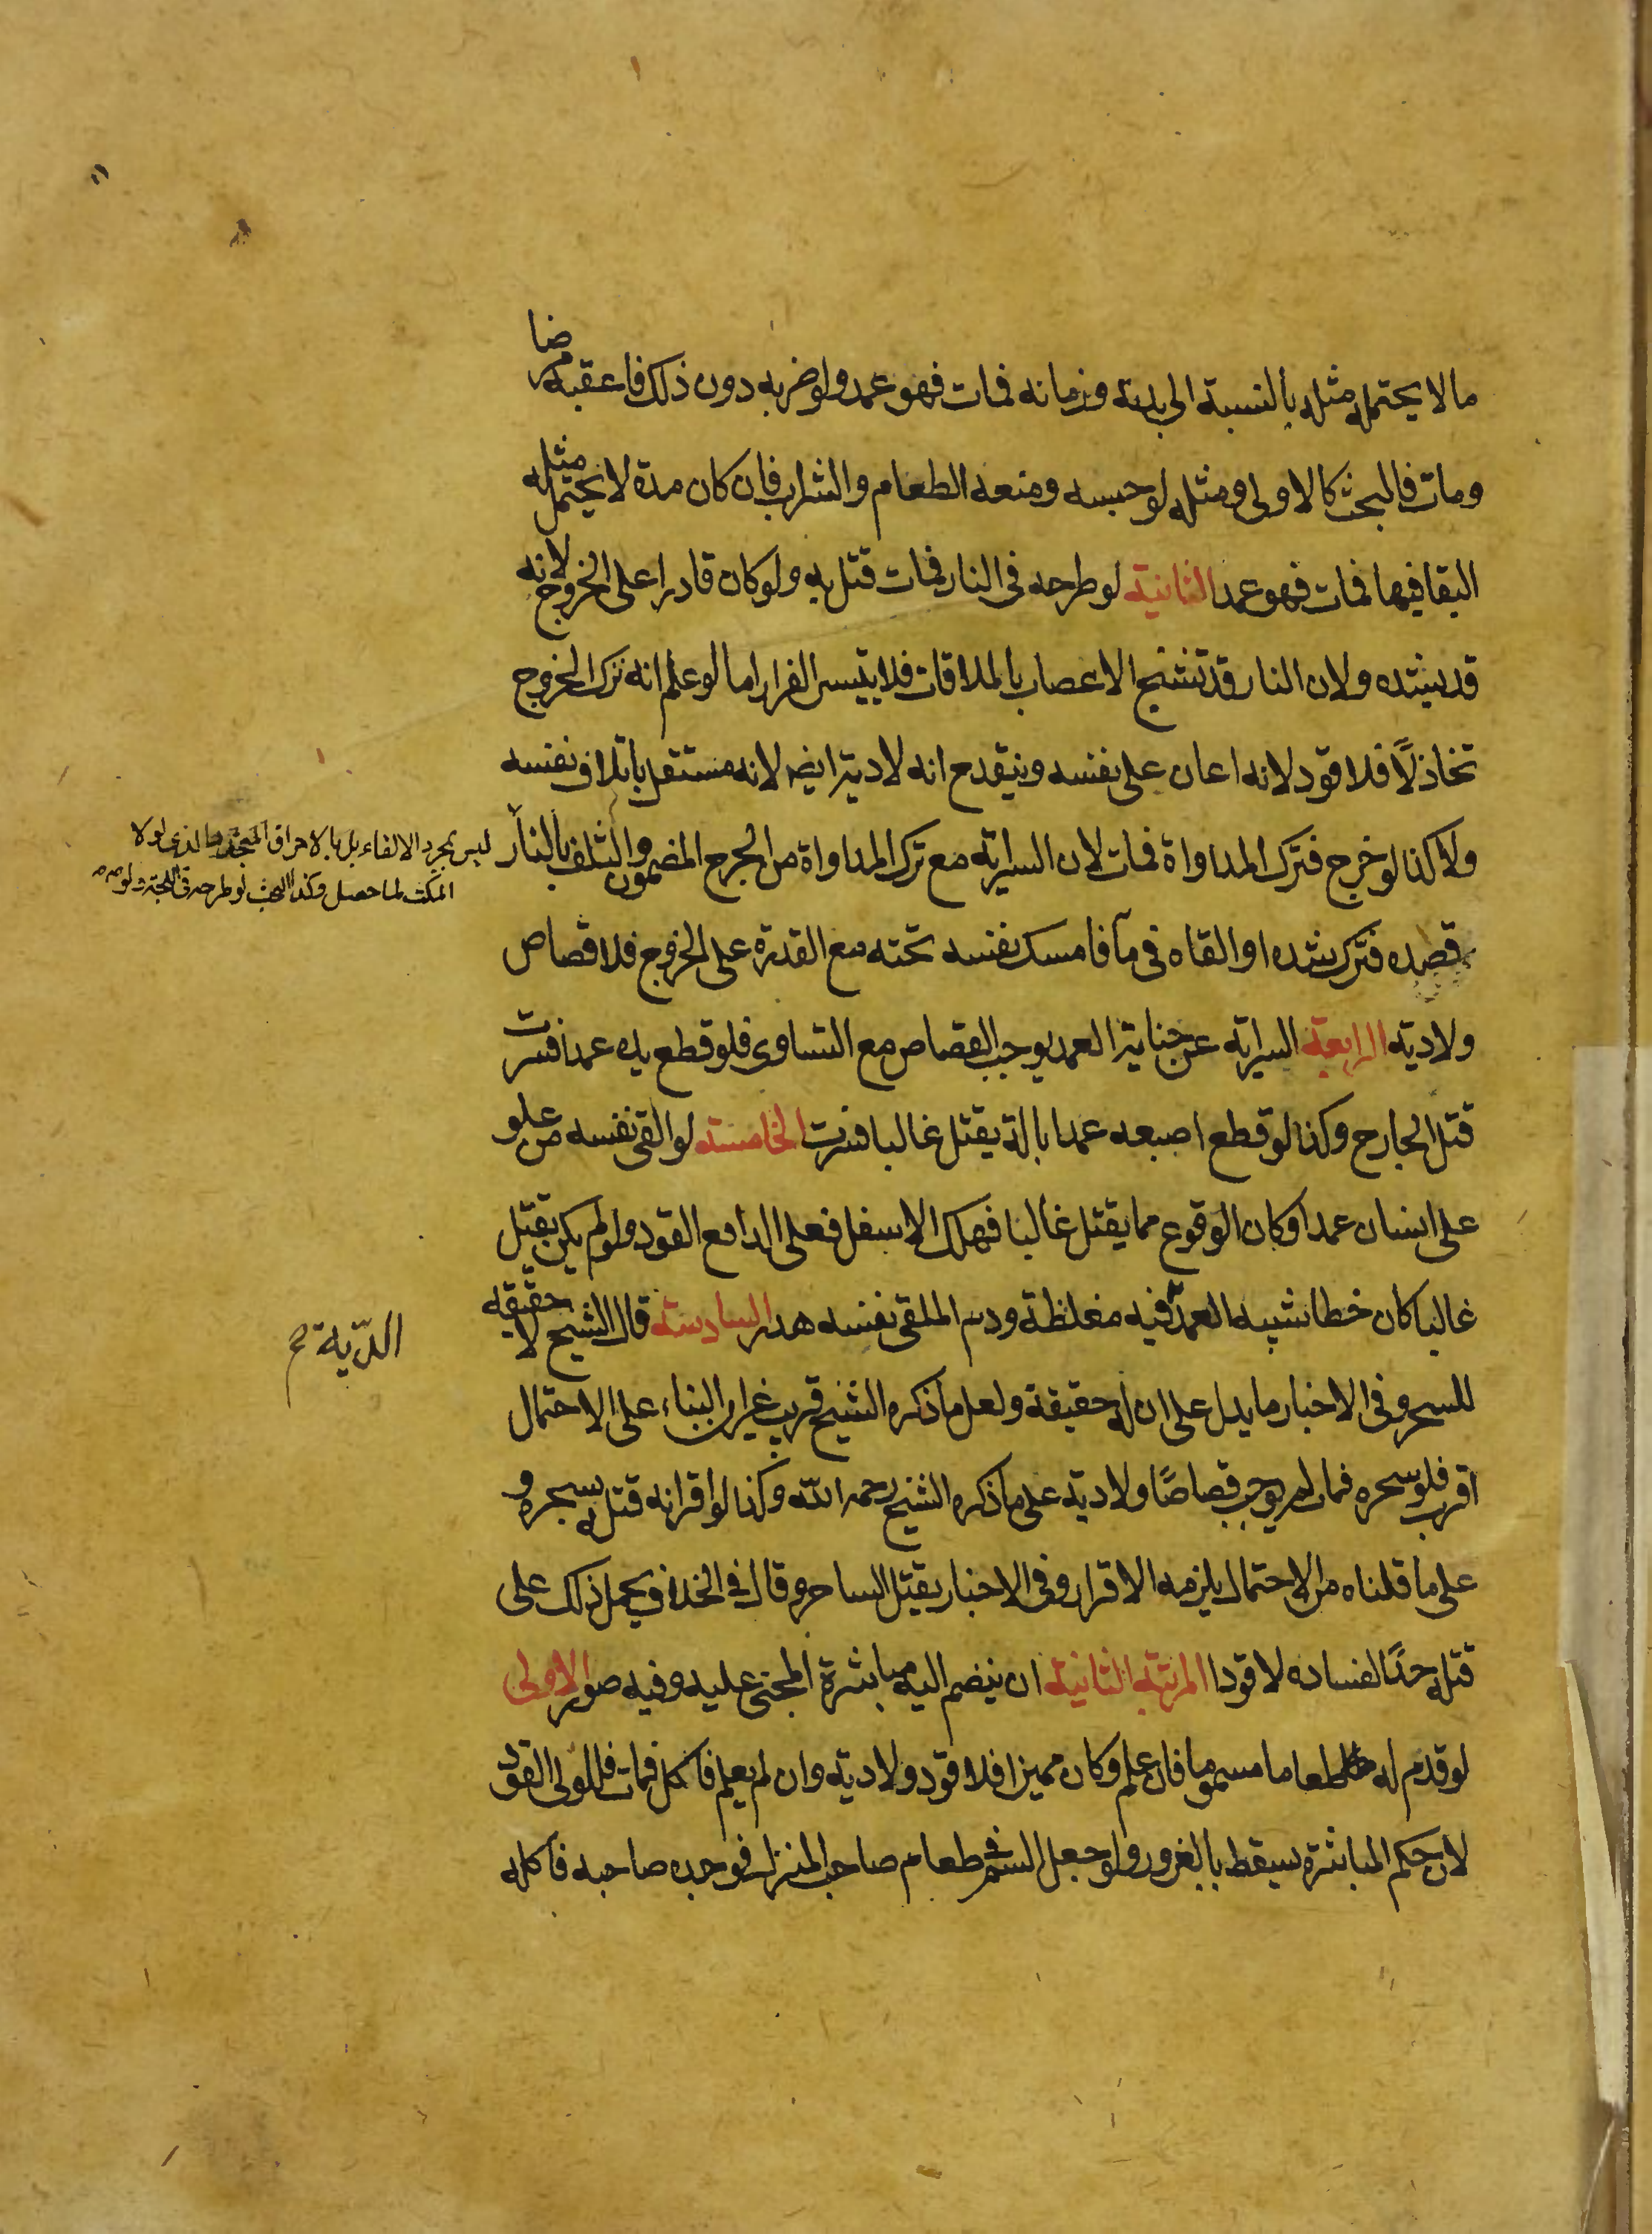 ما لا يحتمله مثله بالنسبة الى بدنه وزمانه فمات فهو عمد ولو ضربه دون ذلك فاعقبه مرضا
ومات فالبحث كالاولى ومثله لو حبسه ومنعه الطعام والشراب فان كان مدة لا يحتمل مثله
البقا فيها فمات فهو عمد الثانية لو طرحه فى النار فمات قتل به ولو كان قادرا على الخروج لانه
قد يشده ولان النار قد تشنج الاعصاب بالملاقات فلا يتيسر الفرار اما لو علم انه ترك الخروج
تخاذلاً فلا قود لانه اعان على نفسه وينقدح انه لا دية ايضا لانه مستقل باتلاف نفسه
ولا كذا لو خرج فترك المداواة فمات لان السراية مع ترك المداواة من الجرح المضمون والتلف بالنار
ليس بمجرد الالقاء بل بالاحراق المتجدد الذى لولا
المكث لما حصل وكذا البحث لو طرحه فى اللجة ولو
قصده فترك شده او القاه فى مآ فامسك نفسه تحته مع القدرة على الخروج فلا قصاص
ولا دية الرابعة السراية عن جناية العمد يوجب القصاص مع التساوى فلو قطع يده عمدا فسرت
قتل الجارح وكذا لو قطع اصبعه عمدا بالة يقتل غالبا فسرت الخامسة لو القى نفسه من علو
على انسان عمدا وكان الوقوع مما يقتل غالبا فهلك الاسفل فعلى الدافع القود ولو لم يكن يقتل
غالبا كان خطا شبيه العمد فيه مغلظة ودم الملقى نفسه هدر السادسة قال الشيخ لا حقيقه
الدّية ح
للسحر وفى الاخبار ما يدل على ان له حقيقة ولعل ما ذكره الشيخ قريب غير ان البناء على الاحتمال
اقرب فلو سحره فمات لم يوجب قصاصًا ولا دية على ما ذكره الشيخ رحمه اللّه وكذا لو اقر انه قتله بسحره و
على ما قلناه من الاحتمال يلزمه الاقرار وفى الاخبار يقتل الساحر و قال فى الخلاف يحمل ذلك على
قتله حدًا لفساده لا قودا المرتبة الثانية ان ينضم اليه مباشرة المجنى عليه وفيه صور الاولى
لو قدم له طعاما مسموما فان علم وكان مميزا فلا قود ولا دية وان لم يعلم فاكل فمات فللولى القود
لان حكم المباشرة يسقط بالغرور ولو جعل السم فى طعام صاحب المنزل فوجده صاحبه فاكله